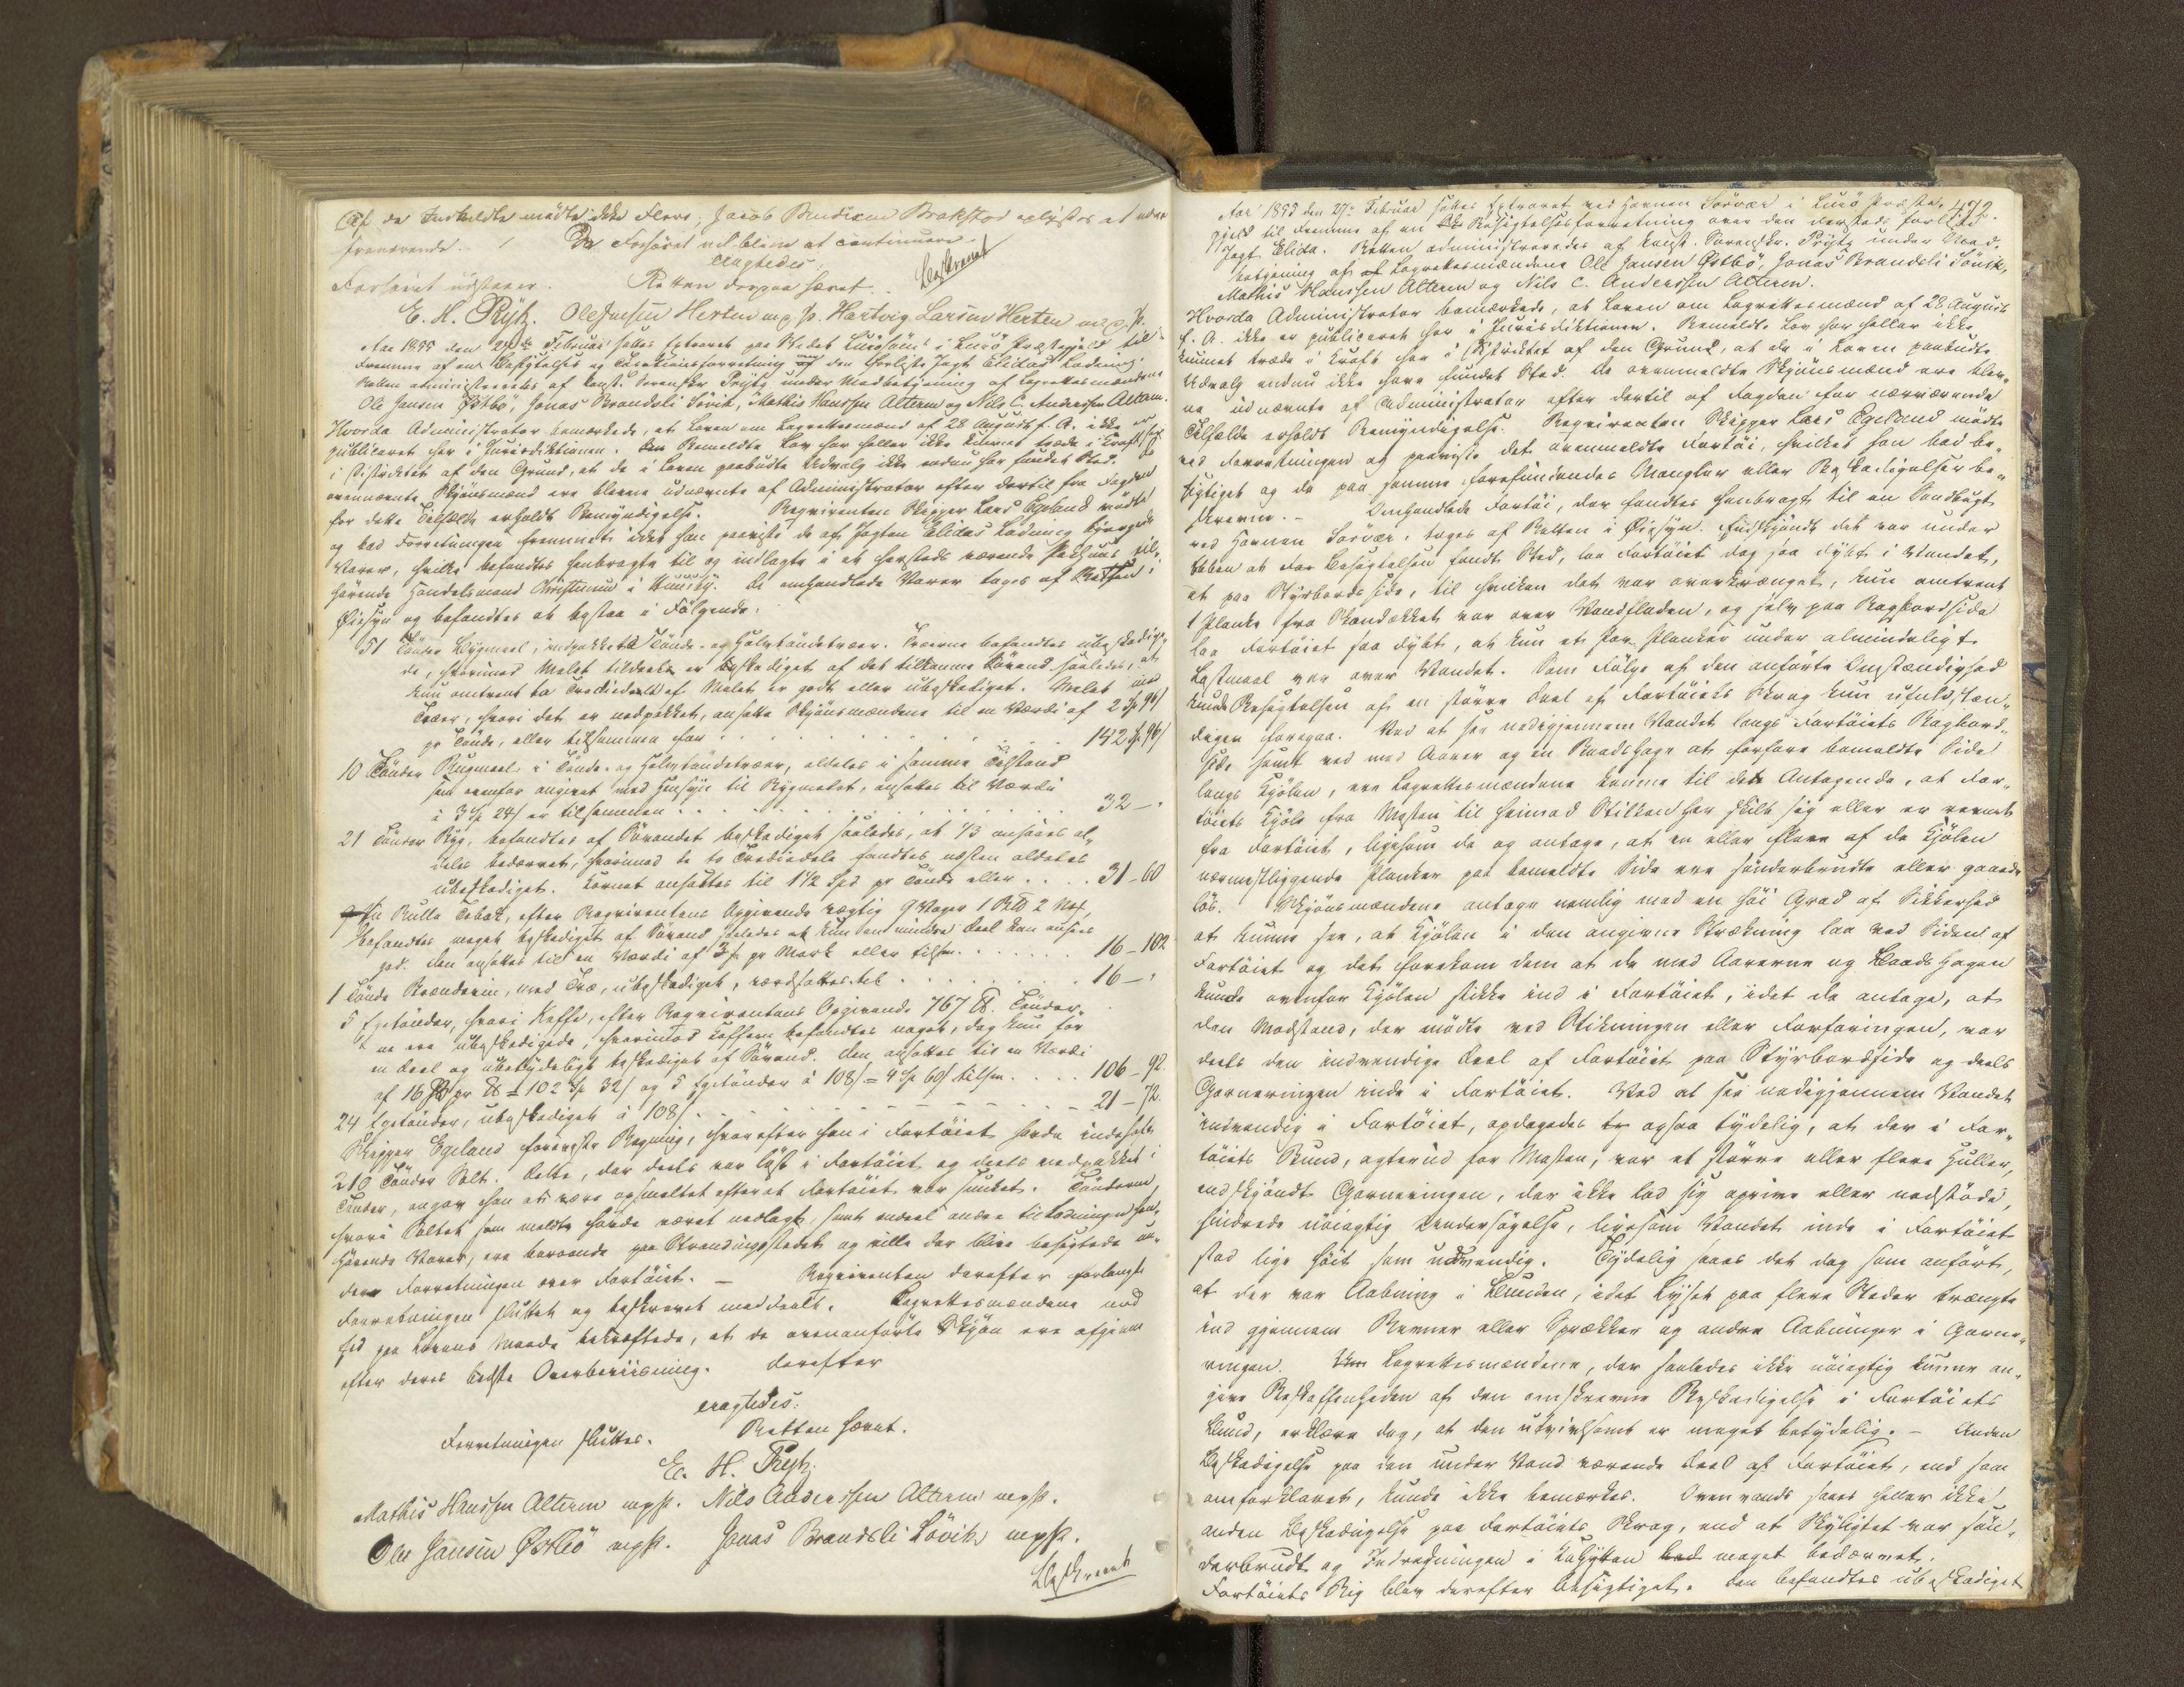 Af de Indkaldte mødte ikke Flere, Jacob Bendixen Brakstad oplystes at være
fraværende. / Da Forhöret vil blive at continuere
eragtedes:
Forhöret udstaaer. Retten derpaa hævet.
Beskrevet
E. H. Prytz. Ole Jensen Herten m. p. P. Hartvig Larsen Herten m. p. P.
Aar 1855 den 27de Februar sattes Extraret paa Stedet Luröund i Lurö Præstegjeld til
Fremme af en Besigtelses og Taxationsforretning over den forliste Jagt Elidas Ladning.
Retten administreredes af const. Sorenskr. Prytz under Medbetjening af Lagrettesmændene
Ole Jansen Østbö, Jonas Brandsli Lövik, Mathis Hanssen Alteren og Nils C. Anderssen Alteren.
Hvorda Administrator bemærkede, at Loven om Lagrettesmænd af 28 August f. A. ikke er
publiceret her i Jurisdiktionen. Bemeldte Lov har heller ikke kunnet træde i Kraft her
i Distriktet af den Grund, at de i Loven paabudte Udvalg ikke endnu har fundet Sted. De
ovennævnte Skjönsmænd ere blevne udnævnte af Administrator efter dertil fra Fogden
for dette Tilfælde erholdt Bemyndigelse. Reqvirenten Skipper Lars Egeland mödte
og bad Forretningen fremmet idet han paaviste de af Jagten Elidas Ladning bjergede
Varer, hvilke befandtes henbragte til og indlagte i et hersteds værende Pakhuus til-
hörende Handelsmand Christensen i Huusby. De omhandlede Varer toges af Retten i
Öiesyn og befandtes at bestaae i Fölgende:
51 Tönder Bygmeel, indpakket i Tönde- og Halvtöndetræer. Træerne befandtes ubeskadige-
de, hvorimod Melet tildeels er beskadiget af det tilkomne Sövand saaledes, at
kun omtrent to Trediedele af Melet er godt eller ubeskadiget. Melet med
Træer, hvori det er nedpakket, ansatte Skjönsmændene til en Værdi af 2 Sp 96 s
pr Tönde, eller tilsammen for . . . 142 Sp. 96 s
10 Tönder Rugmeel i Tönde- og Halvtöndetræer, aldeles i samme Tilstand
som ovenfor angivet med Hensyn til Bygmelet, ansattes til Værdi
à 3 Sp 24 s er tilsammen . . . 32 - "
21 Tönder Byg, befandtes af Sövandet beskadiget saaledes, at 1/3 ansaaes al-
deles bedærvet, hvorimod de to Trediedele fandtes næsten aldeles
ubeskadiget. Kornet ansattes til 1 1/2 Spd pr Tönde eller . . . 31 - 60
En Rulle Tobak, efter Reqvirentens Opgivende vægtig 9 Voger 1 Bpd 2 Mk,
befandtes meget beskadiget af Sövand saaledes at kun en mindre Deel kan ansees
god. Den ansattes til en Værdi af 3 s pr Mark eller tilsm. . . . 16 - 102
1 Tönde Brændeviin, med Træ, ubeskadiget, værdsattes til . . . 16 - "
5 Egetönder, hvori Kaffe, efter Reqvirentens Opgivende 767 ℔. Tönder-
ne ere ubeskadigede, hvorimod Kaffeen befandtes noget, dog kun for
en Deel og ubetydeligt beskadiget af Sövand. Den ansattes til en Værdi
af 16 s pr ℔ = 102 Sp 32 s og 5 Egetönder à 108 s = 4 Sp 60 s tilsm. . . . 106 - 92.
24 Egetönder, ubeskadiget à 108 s . . . 21 - 72.
Skipper Egeland foreviste Regning, hvorefter han i Fartöiet havde indeholdt
210 Tönder Salt. Dette, der deels var löst i Fartöiet og deels nedpakket i
Tönder, angav han at være opsmeltet efterat Fartöiet var sunket. Tönderne,
hvori Saltet som meldte havde været nedlagt, samt endeel andre til Ladningen hen-
hörende Varer, ere beroende paa Strandingsstedet og ville der blive besigtede un-
der Forretningen over Fartöiet. — Reqvirenten derefter forlangte
Forretningen sluttet og beskrevet meddeelt. Lagrettesmændene med
Eed paa Lovens Maade bekræftede, at de ovenanförte Skjön ere afgivne
efter deres bedste Overbeviisning. Derefter
eragtedes:
Forretningen sluttes. Retten hævet.
E. H. Prytz.
Mathis Hanssen Alteren m p P. Nils Anderssen Alteren m p P.
Ole Jansen Østbö m p P. Jonas Brandsli Lövik m p P.
Beskrevet
472.
Aar 1855 den 27de Februar sattes Extraret ved Havnen Sörvær i Lurö Præste-
gjeld til Fremme af en Besigtelsesforretning over den dersteds forliste
Jagt Elida. Retten administreredes af const. Sorenskr. Prytz under Med-
betjening af Lagrettesmændene Ole Jansen Østbö, Jonas Brandsli Lövik,
Mathis Hanssen Alteren og Nils C. Anderssen Alteren.
Hvorda Administrator bemærkede, at Loven om Lagrettesmænd af 28 August
f. A. ikke er publiceret her i Jurisdiktionen. Bemeldte Lov har heller ikke
kunnet træde i Kraft her i Distriktet af den Grund, at de i Loven paabudte
Udvalg endnu ikke have fundet Sted. De ovenmeldte Skjönsmænd ere blev-
ne udnævnte af Administrator efter dertil af Fogden for nærværende
Tilfælde erholdt Bemyndigelse. Reqvirenten Skipper Lars Egeland mödte
ved Forretningen og paaviste det ovenmeldte Fartöi, hvilket han bad be-
sigtiget og de paa samme forefindendes Mangler eller Beskadigelser be-
skreven. — Omhandlede Fartöi, der fandtes henbragt til en Sandbugt
ved Havnen Sörvær, toges af Retten i Öiesyn. Endskjöndt det var under
Ebben at Besigtelsen fandt Sted, laa Fartöiet dog saa dybt i Vandet,
at paa Styrbords Side, til hvilken det var overkrænget, kun omtrent
1 Planke fra Skandækket var over Vandfladen, og selv paa Bagbordside
laa Fartöiet saa dybt, at kun et Par Planker under almindeligt
Lastmaal var over Vandet. Som Fölge af den anförte Omstændighed
kunde Besigtelsen af en större Deel af Fartöiets Skrog kun ufuldstæn-
digen foregaa. Ved at see nedigjennem Vandet langs Fartöiets Bagbord-
side, samt ved med Aarer og en Baadshage at forfare bemeldte Side
langs Kjölen, ere Lagrettesmændene komne til det Antagende, at Far-
töiets Kjöl fra Masten til henimod Stilken har skilt sig eller er revnet
fra Fartöiet, ligesom de og antage, at en eller flere af de Kjölen
nærmestliggende Planker paa bemeldte Side ere sönderbrudte eller gaaede
lös. Skjönsmændene antage nemlig med en höi Grad af Sikkerhed
at kunne see, at Kjölen i den angivne Strækning laa ved Siden af
Fartöiet og det forekom dem at de med Aarerne og Baadshagen
kunde ovenfor Kjölen stikke ind i Fartöiet, idet de antage, at
den Modstand, der mödte ved Stikningen eller Forfaringen, var
deels den indvendige Deel af Fartöiet paa Styrbordside og deels
Garneringen inde i Fartöiet. Ved at see nedigjennem Vandet
indvendig i Fartöiet, opdagedes ogsaa tydelig, at der i Far-
töiets Bund, agterud for Masten, var et större eller flere Huller,
endskjöndt Garneringen, der ikke lod sig oprive eller nedstöde,
hindrede nöiagtig Undersögelse, ligesom Vandet inde i Fartöiet
stod lige höit som udvendig. Tydelig saaes det dog som anfört,
at der var Aabning i Bunden, idet Lyset paa flere Steder trængte
ind gjennem Revner eller Sprækker og andre Aabninger i Garne-
ringen. Lagrettesmændene, der saaledes ikke nöiagtig kunne an-
give Beskaffenheden af den omskrevne Beskadigelse i Fartöiets
Bund, erklære dog, at den utvivlsomt er meget betydelig. — Anden
Beskadigelse paa den under Vand værende Deel af Fartöiet, end som
omforklaret, kunde ikke bemærkes. Oven vands saaes heller ikke
anden Beskadigelse paa Fartöiets Skrog, end at Skyligtet var sön-
derbrudt og Indredningen i Kahytten meget bedærvet.
Fartöiets Rig blev derefter besigtiget. Den befandtes ubeskadiget